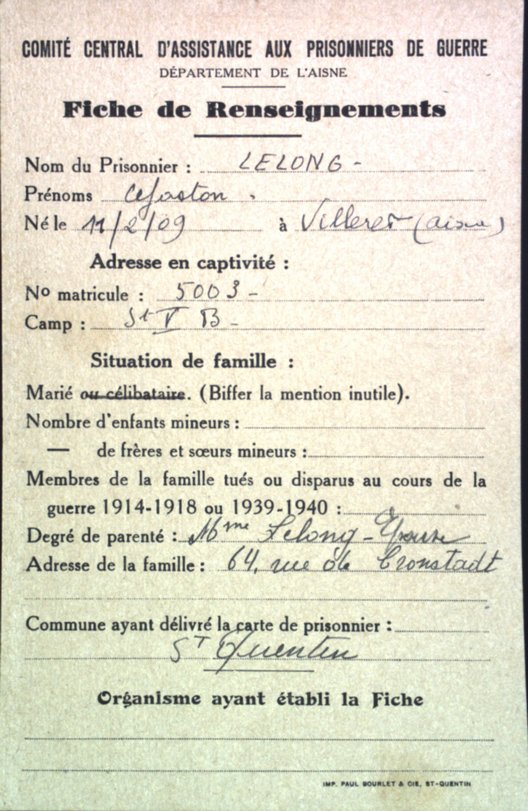 COMITÉ CENTRAL D'ASSISTANCE AUX PRISONNIERS DE GUERRE
DÉPARTEMENT DE L'AISNE
Fiche de Renseignements
Nom du Prisonnier : LELONG -
Prénoms Gaston .
Né le 11/2/09 à Villeret (aisne)
Adresse en captivité :
No matricule : 5003 -
Camp : St V B -
Situation de famille :
Marié ou célibataire. (Biffer la mention inutile).
Nombre d'enfants mineurs :
— de frères et sœurs mineurs :
Membres de la famille tués ou disparus au cours de la
guerre 1914-1918 ou 1939-1940 :
Degré de parenté : Mme Lelong -
Adresse de la famille : 64, rue de Cronstadt
Commune ayant délivré la carte de prisonnier :
St Quentin
Organisme ayant établi la Fiche
IMP. PAUL BOURLET & CIE, ST-QUENTIN